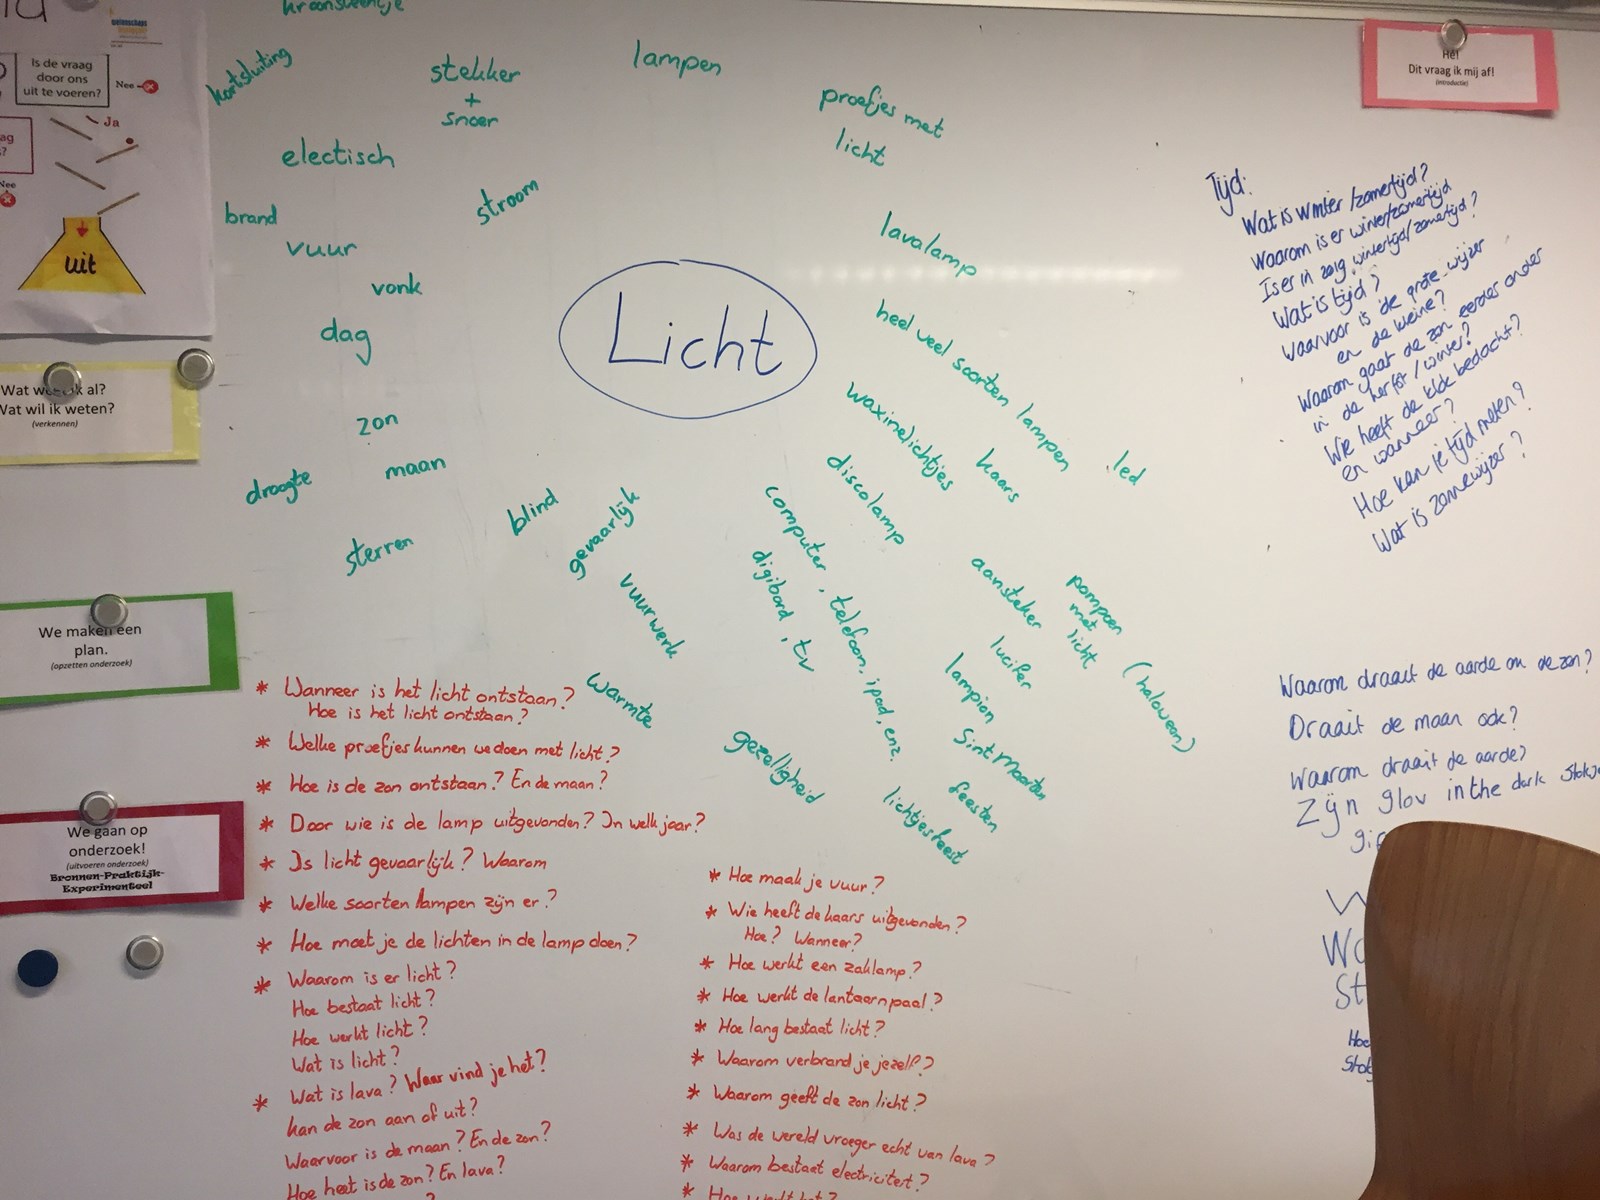 kroonsteentje
kortsluiting
stekker
+
snoer
lampen
proefjes met
licht
electisch
stroom
brand
vuur
vonk
dag
lavalamp
Licht
heel veel soorten lampen
led
waxinelichtjes
kaars
discolamp
zon
maan
droogte
sterren
blind
gevaarlijk
vuurwerk
warmte
gezelligheid
computer, telefoon, ipad, enz.
digibord, tv
aansteker
lucifer
pompoen
met
licht
(haloween)
lampion
Sint Maarten
feesten
lichtjesfeest
* Wanneer is het licht ontstaan?
Hoe is het licht ontstaan?
* Welke proefjes kunnen we doen met licht?
* Hoe is de zon ontstaan? En de maan?
* Door wie is de lamp uitgevonden? In welk jaar?
* Is licht gevaarlijk? Waarom
* Welke soorten lampen zijn er?
* Hoe moet je de lichten in de lamp doen?
* Waarom is er licht?
Hoe bestaat licht?
Hoe werkt licht?
Wat is licht?
* Wat is lava? Waar vind je het?
kan de zon aan of uit?
Waarvoor is de maan? En de zon?
Hoe heet is de zon? En lava?
* Hoe maak je vuur?
* Wie heeft de kaars uitgevonden?
Hoe? Wanneer?
* Hoe werkt een zaklamp?
* Hoe werkt de lantaarnpaal?
* Hoe lang bestaat licht?
* Waarom verbrand je jezelf?
* Waarom geeft de zon licht?
* Was de wereld vroeger echt van lava?
* Waarom bestaat electriciteit?
Tijd:
Wat is winter/zomertijd?
Waarom is er winter/zomertijd
Is er in wintertijd/zomertijd?
Wat is tijd?
Waarvoor is de grote wijzer
en de kleine?
Waarom gaat de zon eerder onder
in de herfst/winter?
Wie heeft de klok bedacht?
en wanneer?
Hoe kan je tijd meten?
Wat is zonnewijzer?
Waarom draait de aarde om de zon?
Draait de maan ook?
Waarom draait de aarde?
Zijn glov in the dark
Hé!
Dit vraag ik mij af!
(introductie)
Is de vraag
door ons
uit te voeren?
Nee
Ja
Nee
uit
Wat al?
Wat wil ik weten?
(verkennen)
We maken een
plan.
(opzetten onderzoek)
We gaan op
onderzoek!
(uitvoeren onderzoek)
Bronnen-Praktijk-
Experimenteel